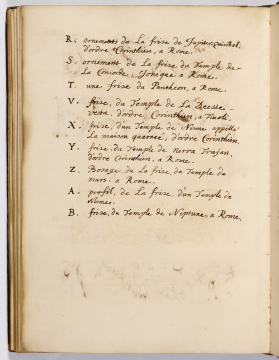 R. ornements de La frise de Jupiter quirinal,
d'ordre Corinthien, a Rome.
S. ornement de La frise du Temple de
La Concorde, Jonique a Rome.
T. une frise du Pantheon, a Rome.
V. frise, du Temple de La Deesse
vesta, d'ordre, Corinthien, a Tivoli.
X. frise, d'un Temple de Nisme appellé
La maison quarreé, d'ordre Corinthien.
Y. frise, du Temple de nerva Trajan,
d'ordre Corinthien, a Rome.
Z. de La frise du Temple de
mars, a Rome.
A. profil, de La frise d'un Temple de
Nismes.
B. frise, du Temple de Neptune, a Rome.